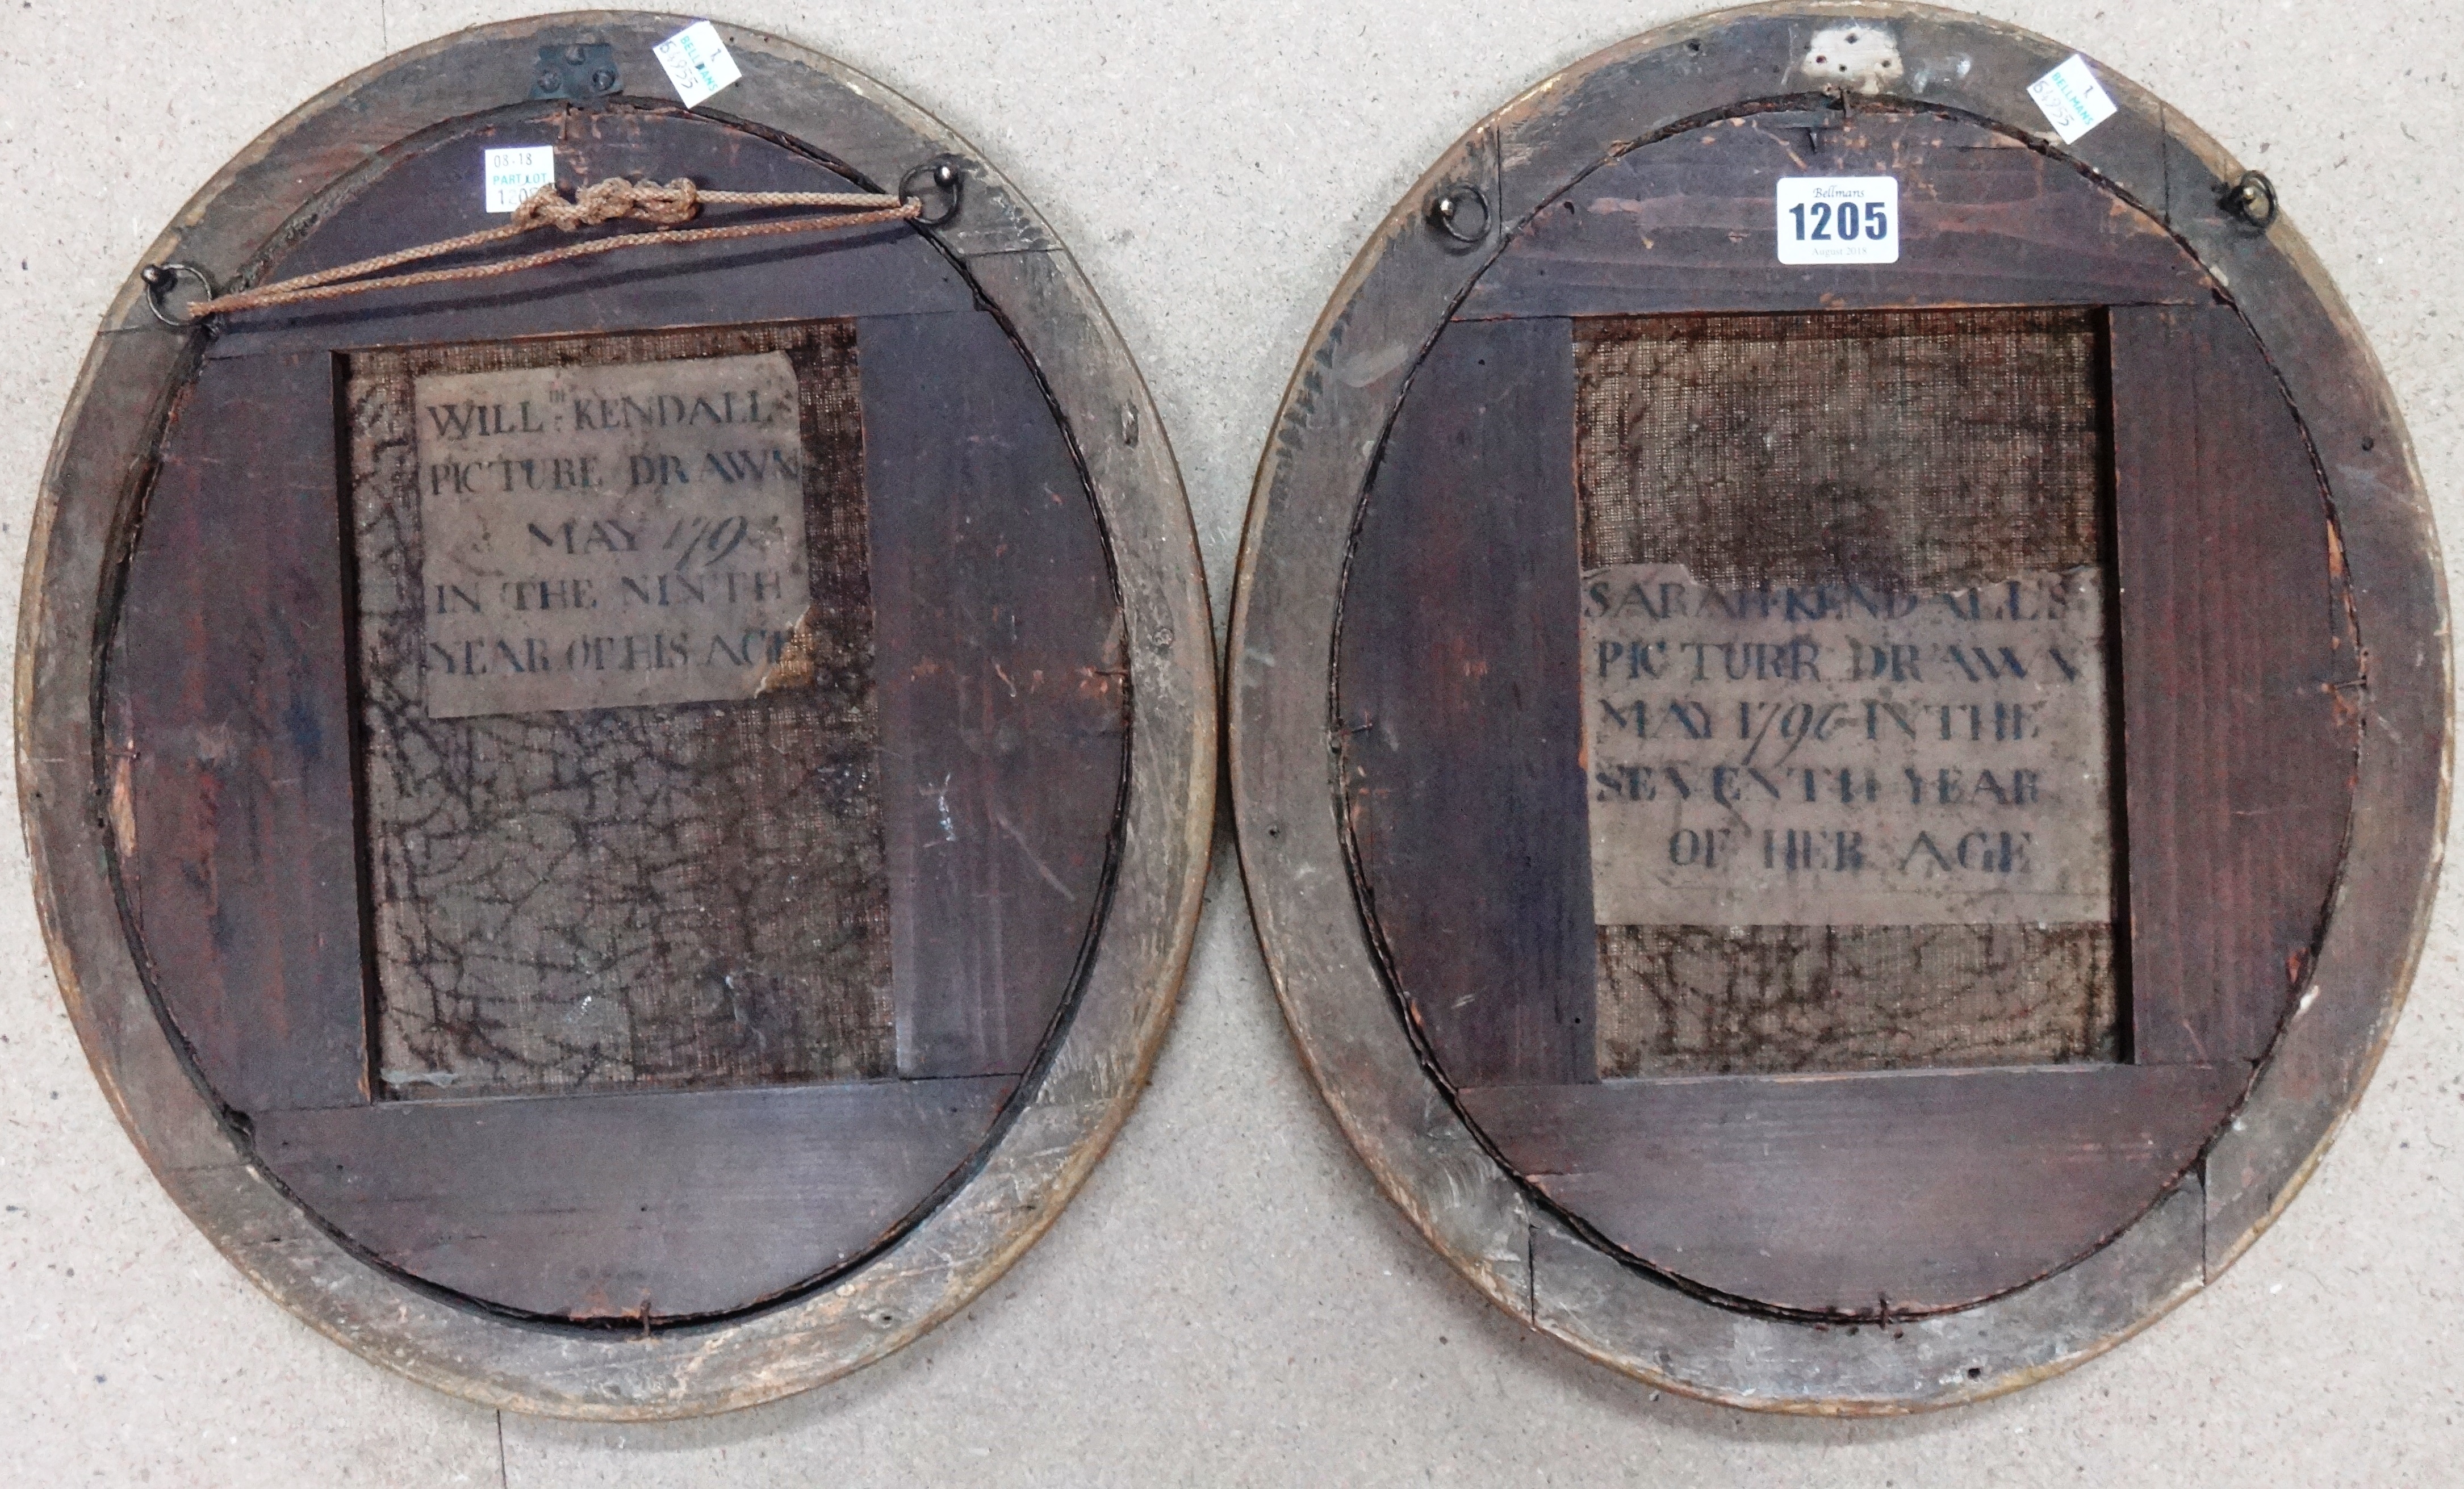 BELLMANS
1
54955
08-18
PART LOT
WILL.M KENDALL'S
PICTURE DRAWN
MAY
IN THE NINTH
YEAR OF HIS AGE
BELLMANS
1
54955
Bellmans
1205
August 2018
SARAH KENDALL'S
PICTURE DRAWN
MAY 1796 IN THE
SEVENTH YEAR
OF HER AGE